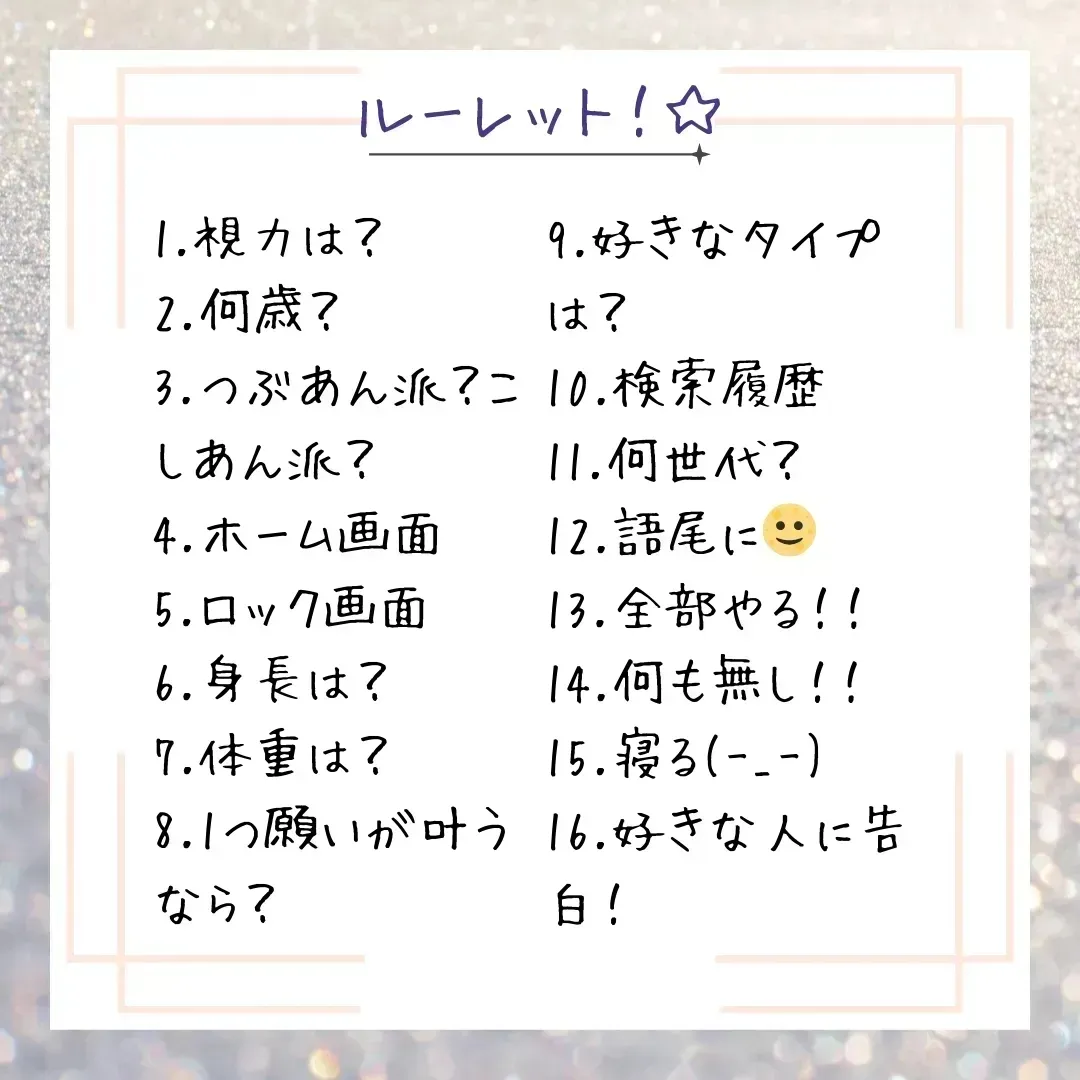 ルーレット！☆
1.視力は？
2.何歳？
3.つぶあん派？こ
しあん派？
4.ホーム画面
5.ロック画面
6.身長は？
7.体重は？
8.1つ願いが叶う
なら？
9.好きなタイプ
は？
10.検索履歴
11.何世代？
12.語尾に🌝
13.全部やる！！
14.何も無し！！
15.寝る(-_-)
16.好きな人に告
白！